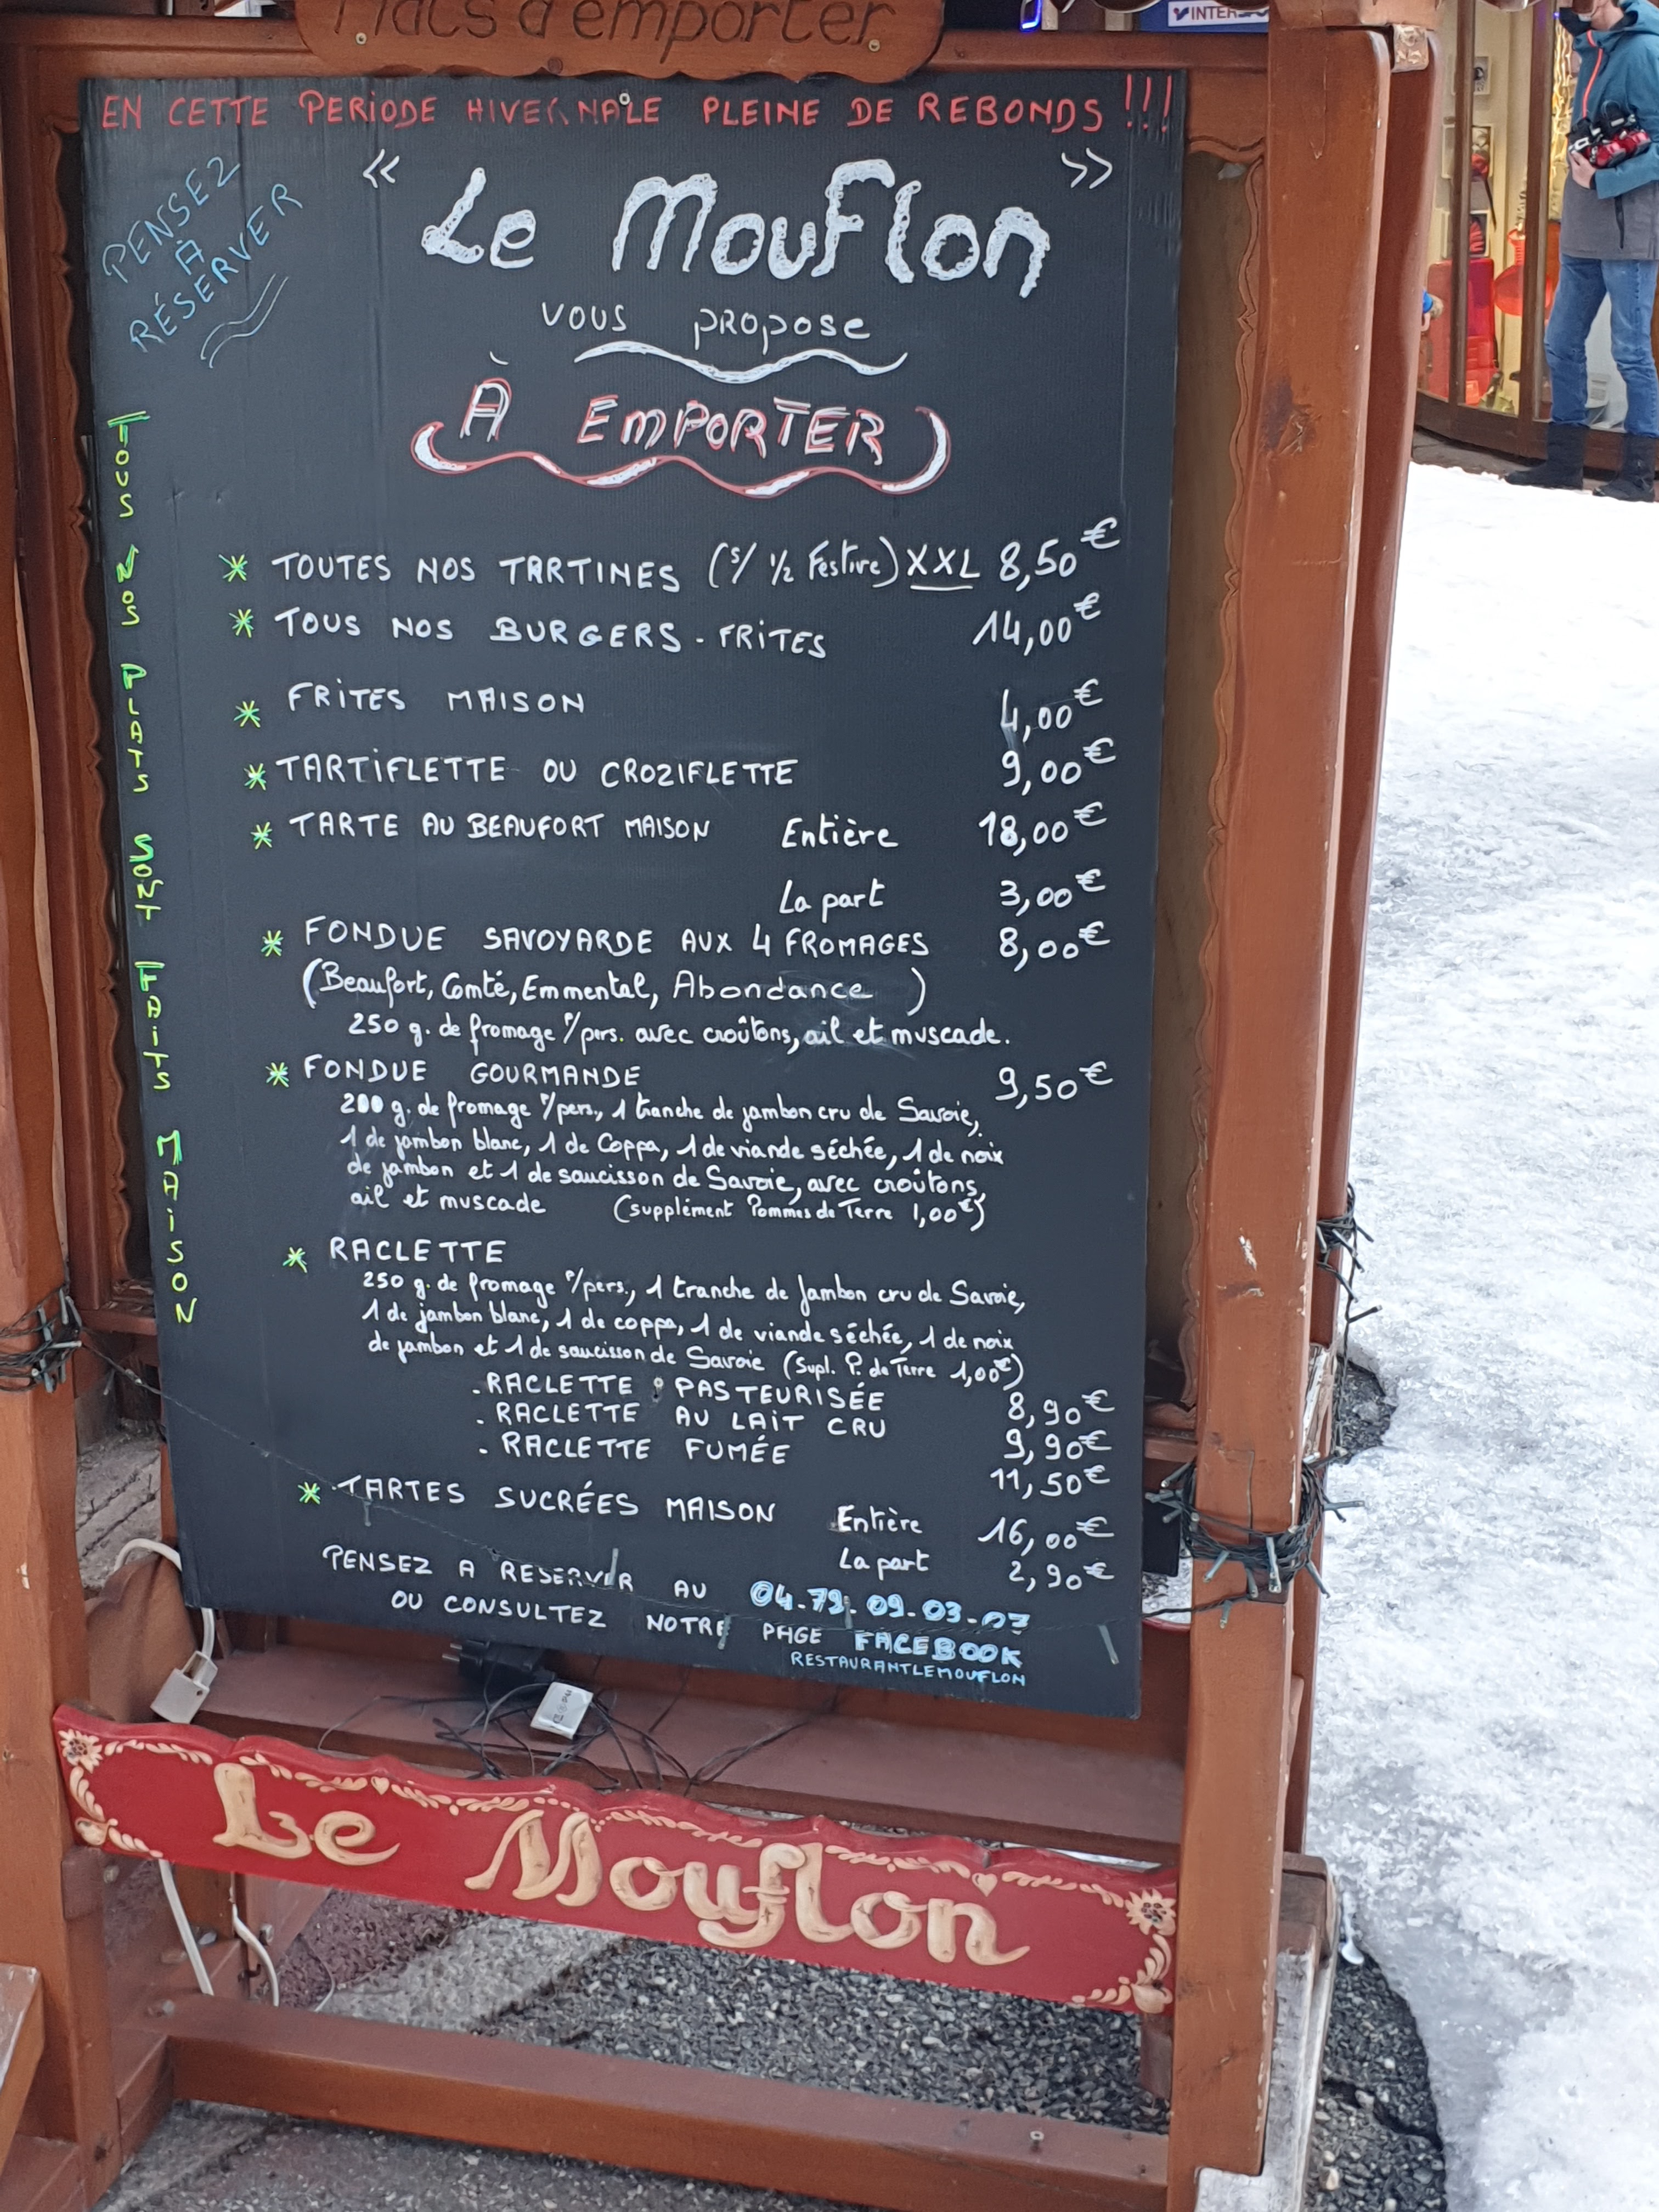 Plats à emporter
INTERSPORT
EN CETTE PERIODE HIVERNALE PLEINE DE REBONDS !!!
PENSEZ
À
RÉSERVER
« Le Mouflon »
VOUS PROPOSE
À EMPORTER
TOUS NOS PLATS SONT FAITS MAISON
* TOUTES NOS TARTINES (s/ 1/2 Festive) XXL 8,50€
* TOUS NOS BURGERS - FRITES 14,00€
* FRITES MAISON 4,00€
* TARTIFLETTE OU CROZIFLETTE 9,00€
* TARTE AU BEAUFORT MAISON Entière 18,00€
La part 3,00€
* FONDUE SAVOYARDE AUX 4 FROMAGES 8,00€
(Beaufort, Comté, Emmental, Abondance )
250 g. de fromage P/pers. avec croûtons, ail et muscade.
* FONDUE GOURMANDE 9,50€
200 g. de fromage P/pers., 1 tranche de jambon cru de Savoie,
1 de jambon blanc, 1 de Coppa, 1 de viande séchée, 1 de noix
de jambon et 1 de saucisson de Savoie, avec croûtons,
ail et muscade (supplément Pommes de Terre 1,00€)
* RACLETTE
250 g. de fromage P/pers., 1 tranche de Jambon cru de Savoie,
1 de jambon blanc, 1 de coppa, 1 de viande séchée, 1 de noix
de jambon et 1 de saucisson de Savoie (Supl. P. de Terre 1,00€)
. RACLETTE PASTEURISÉE 8,90€
. RACLETTE AU LAIT CRU 9,90€
. RACLETTE FUMÉE 11,50€
* TARTES SUCRÉES MAISON Entière 16,00€
La part 2,90€
PENSEZ A RESERVER AU 04.79.09.03.07
OU CONSULTEZ NOTRE PAGE FACEBOOK
RESTAURANTLEMOUFLON
Le Mouflon